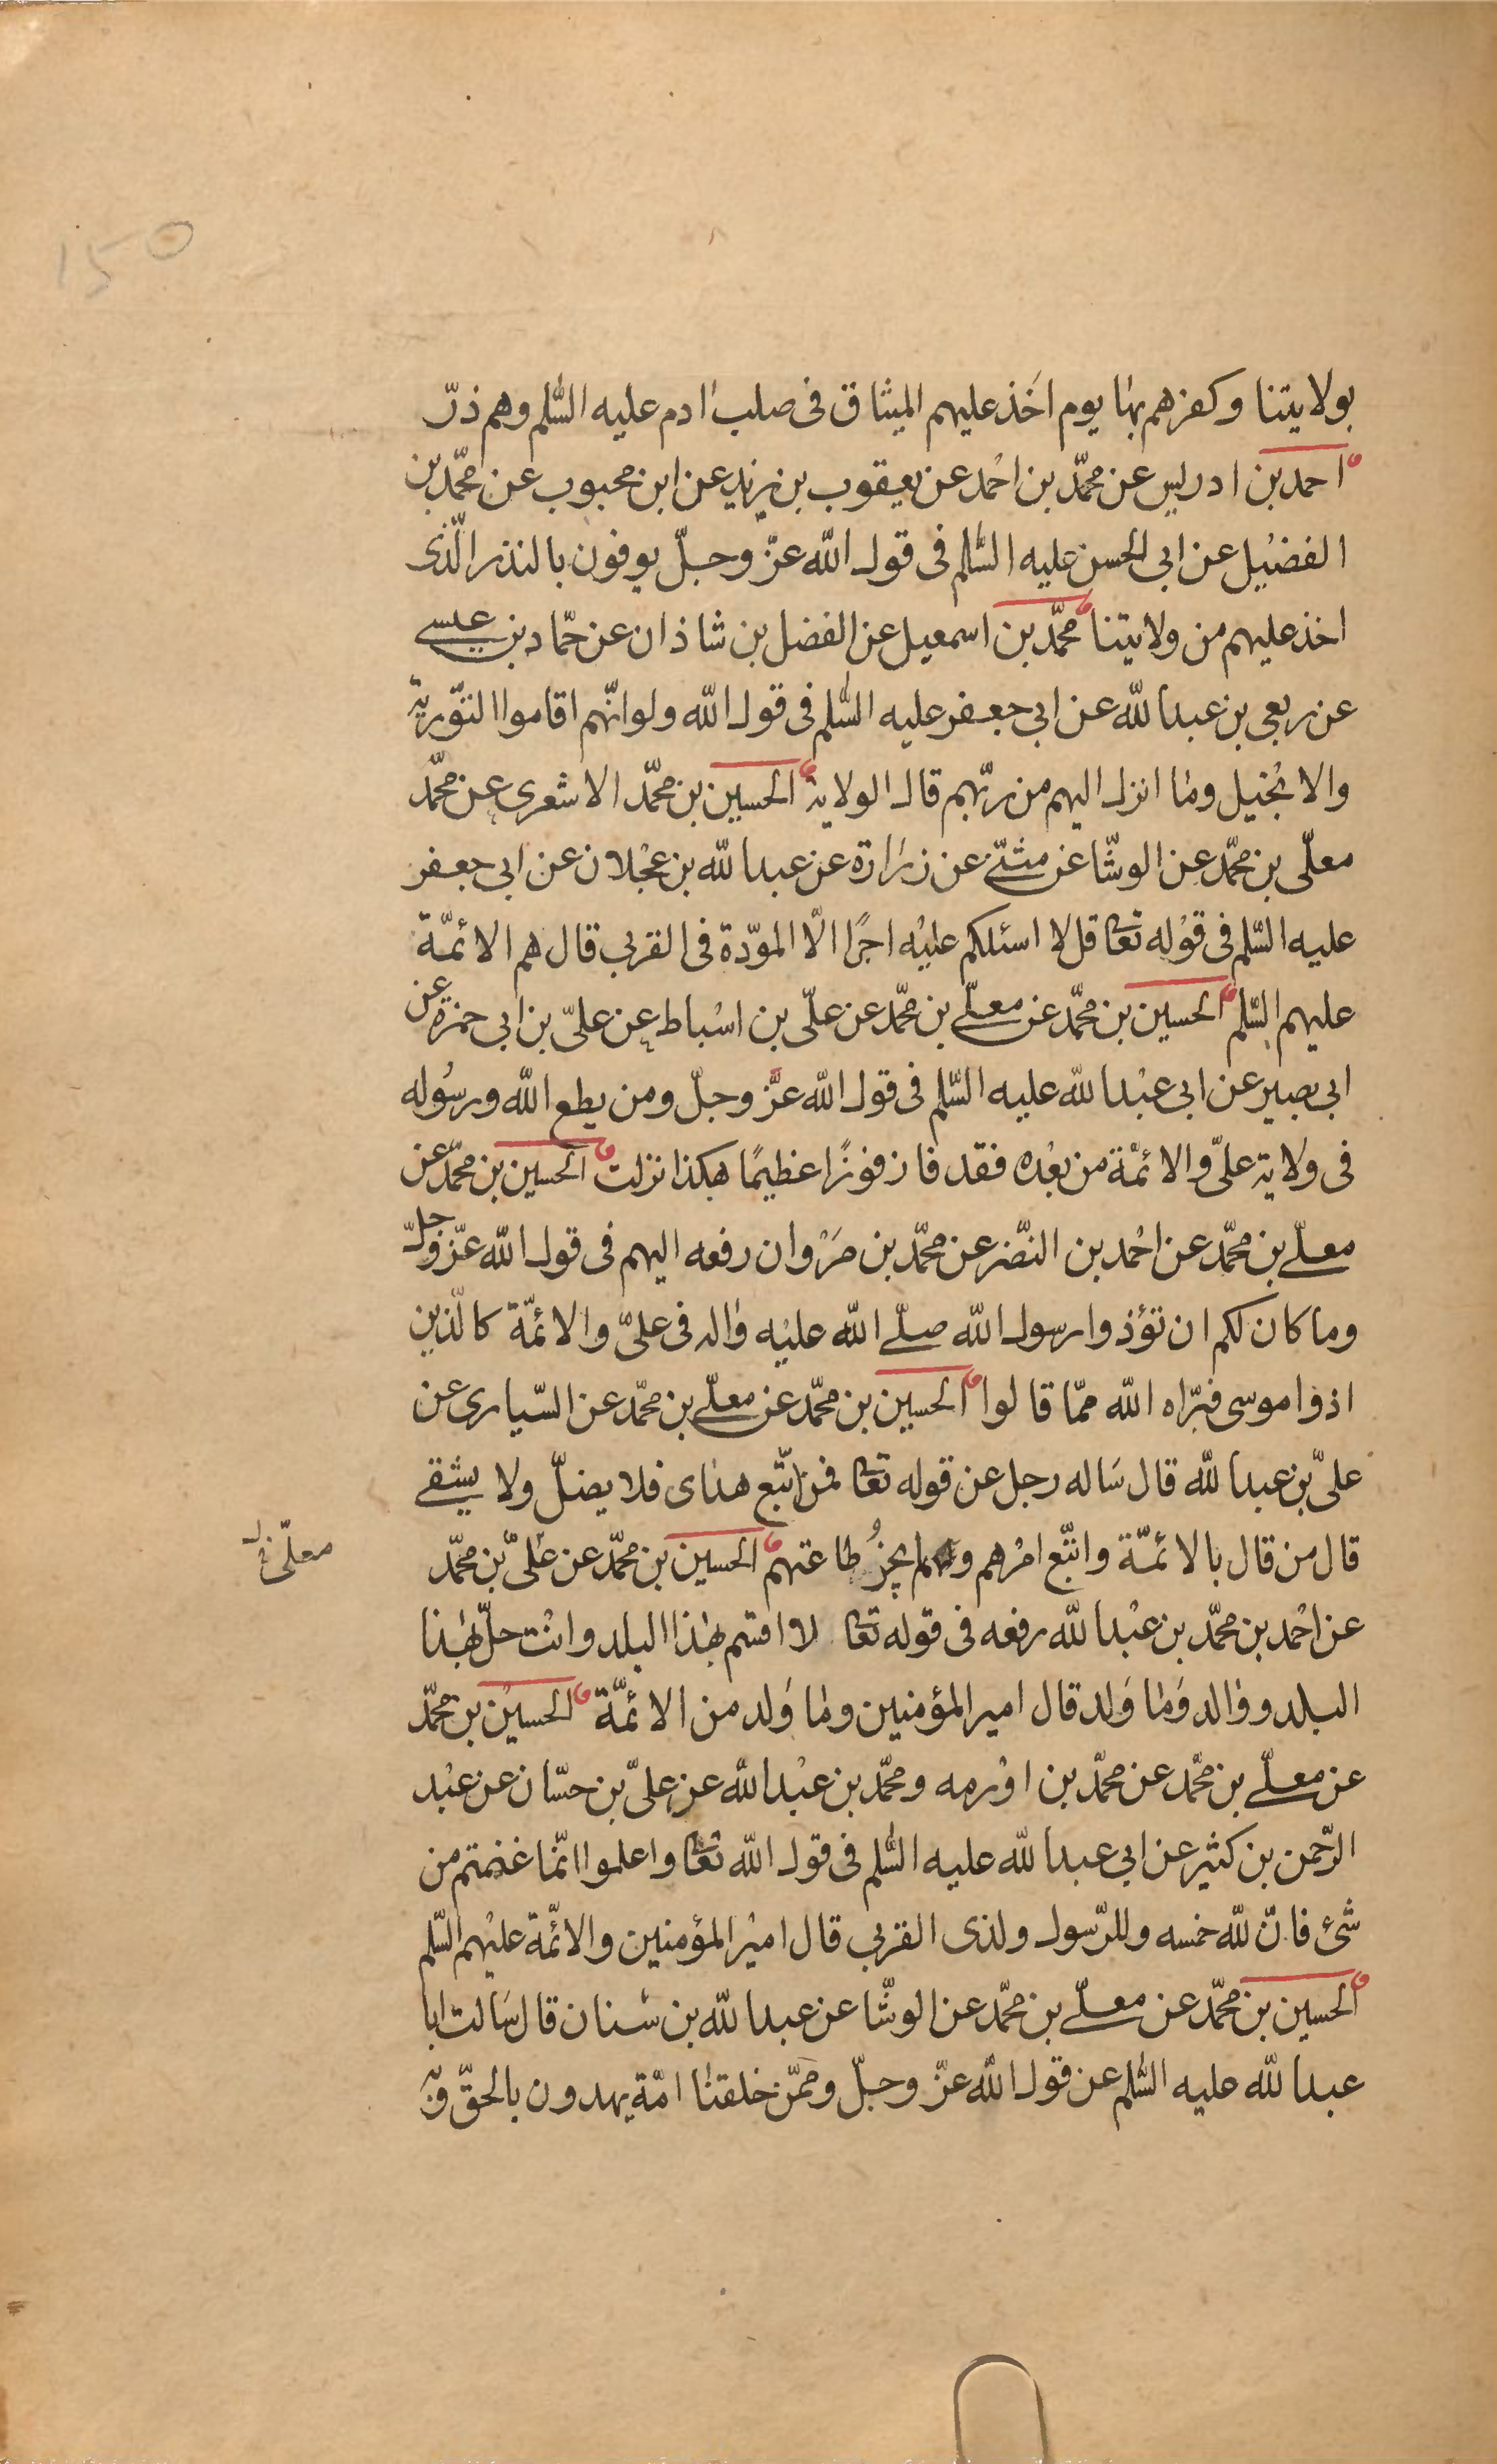 150
بولايتنا وكفرهم بها يوم اخذ عليهم الميثاق فى صلب ادم عليه السّلم وهم ذرّ
احمد بن ادريس عن محمّد بن احمد عن يعقوب بن يزيد عن ابن محبوب عن محمّد بن
الفضيل عن ابى الحسن عليه السّلم فى قول الله عزّ وجلّ يوفون بالنذر الّذى
اخذ عليهم من ولايتنا محمّد بن اسمعيل عن الفضل بن شاذان عن حمّاد بن عيسى
عن ربعى بن عبدالله عن ابى جعفر عليه السّلم فى قول الله ولو انّهم اقاموا التّورية
والانجيل وما انزل اليهم من ربّهم قال الولاية الحسين بن محمّد الاشعرى عن محمّد
معلّى بن محمّد عن الوشّا عن مثنّى عن زرارة عن عبدالله بن عجلان عن ابى جعفر
عليه السّلم فى قوله تعا قل لا اسئلكم عليه اجرًا الّا المودّة فى القربى قال هم الائمّة
عليهم السّلم الحسين بن محمّد عن معلّى بن محمّد عن علّى بن اسباط عن علىّ بن ابى حمزة عن
ابى بصير عن ابى عبدالله عليه السّلم فى قول الله عزّ وجلّ ومن يطع الله ورسوله
فى ولاية علىّ والائمّة من بعده فقد فاز فوزًا عظيمًا هكذا نزلت الحسين بن محمّد عن
معلّى بن محمّد عن احمد بن النّضر عن محمّد بن مروان رفعه اليهم فى قول الله عزّ وجلّ
وما كان لكم ان تؤذوا رسول الله صلّى الله عليه واله فى علىّ والائمّة كالّذين
اذوا موسى فبرّاه الله ممّا قالوا الحسين بن محمّد عن معلّى بن محمّد عن السّيارى عن
علىّ بن عبدالله قال ساله رجل عن قوله تعا فمن اتّبع هداى فلا يضلّ ولا يشقى
قال من قال بالائمّة واتّبع امرهم ولم يجز طاعتهم الحسين بن محمّد عن علىّ بن محمّد
معلّى
عن احمد بن محمّد بن عبدالله رفعه فى قوله تعا لا اقسم بهذا البلد وانت حلّ بهذا
البلد ووالد وما ولد قال امير المؤمنين وما ولد من الائمّة الحسين بن محمّد
عن معلّى بن محمّد عن محمّد بن اورمه ومحمّد بن عبدالله عن علىّ بن حسّان عن عبد
الرّحمن بن كثير عن ابى عبدالله عليه السّلم فى قول الله تعا واعلموا انّما غنمتم من
شئ فانّ لله خمسه وللرّسول ولذى القربى قال امير المؤمنين والائمّة عليهم السّلم
الحسين بن محمّد عن معلّى بن محمّد عن الوشّا عن عبدالله بن سنان قال سالت ابا
عبدالله عليه السّلم عن قول الله عزّ وجلّ وممّن خلقنا امّة يهدون بالحقّ وبه